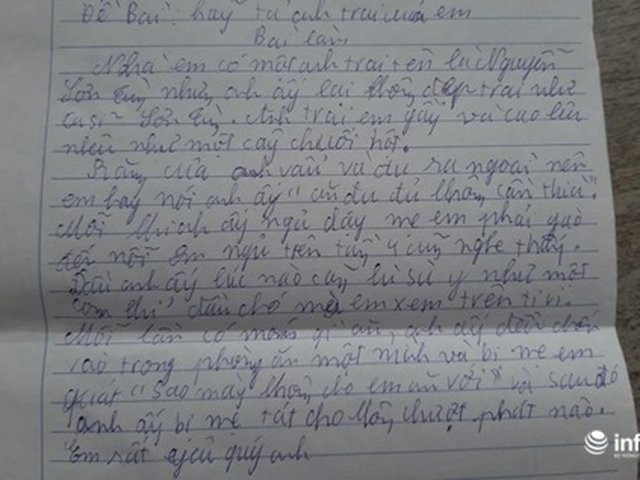 Đề Bài: hãy tả anh trai của em
Bài làm
Nhà em có một anh trai tên là Nguyễn
Sơn Tùng nhưng anh ấy lại không đẹp trai như
ca sĩ Sơn Tùng. Anh trai em gầy và cao lêu
nghêu như một cây chuối hột.
Răng của anh vẩu và đu ra ngoài nên
em hay nói anh ấy "ăn đu đủ không cần thìa".
Mỗi khi anh ấy ngủ dậy mẹ em phải gào
đến nỗi em ngủ trên tầng 4 cũng nghe thấy.
Đầu anh ấy lúc nào cũng bù xù y như một
"ôn thi" đầu chó mà em xem trên ti vi.
Mỗi lần có món gì ăn, anh ấy đều
vào trong phòng ăn một mình và bị mẹ em
quát "sao mày không cho em ăn với" và sau đó
anh ấy bị mẹ tát cho không chượt phát nào.
Em rất quý anh
inf